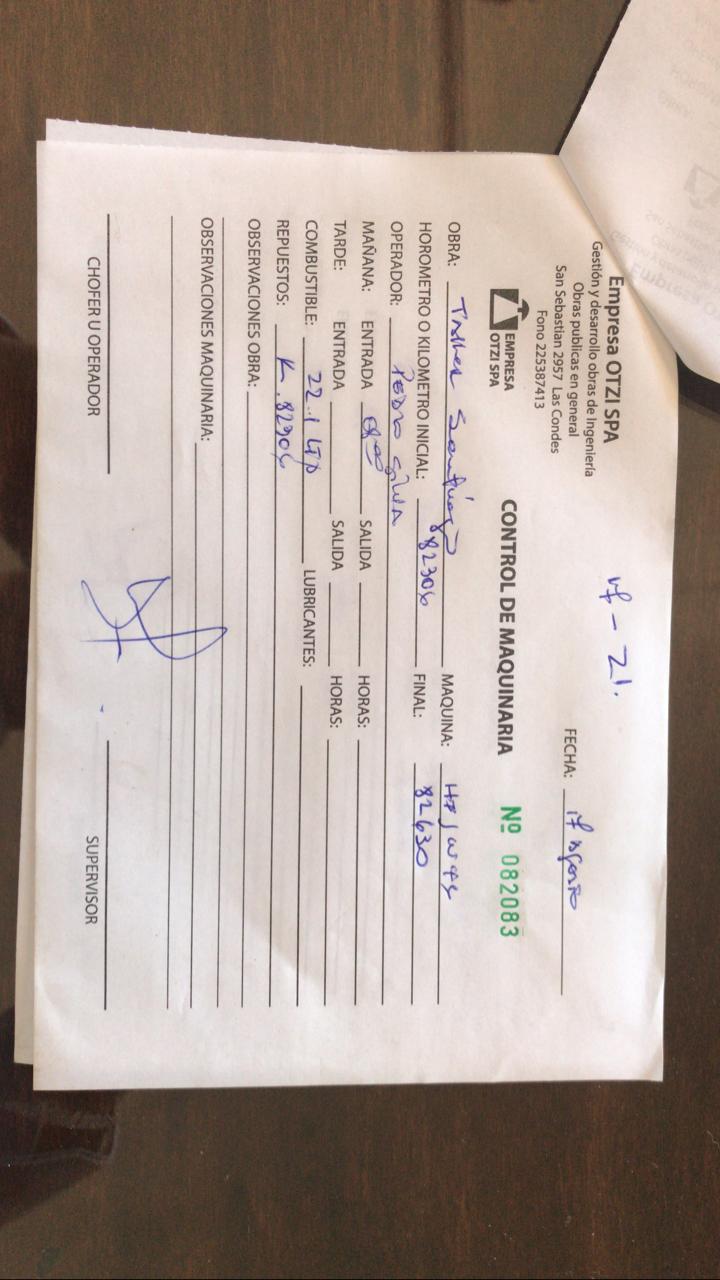 Empresa OTZI SPA
Gestión y desarrollo obras de Ingeniería
Obras publicas en general
San Sebastian 2957 Las Condes
Fono 225387413
FECHA: 17 agosto
EMPRESA
OTZI SPA
CONTROL DE MAQUINARIA Nº 082083
OBRA: Taller Santiago MAQUINA:
HOROMETRO O KILOMETRO INICIAL: 82306 FINAL: 82630
OPERADOR: Pedro Silva
MAÑANA: ENTRADA SALIDA HORAS:
TARDE: ENTRADA SALIDA HORAS:
COMBUSTIBLE: 22.1 LTD LUBRICANTES:
REPUESTOS: K. 82306
OBSERVACIONES OBRA:
OBSERVACIONES MAQUINARIA:
CHOFER U OPERADOR SUPERVISOR